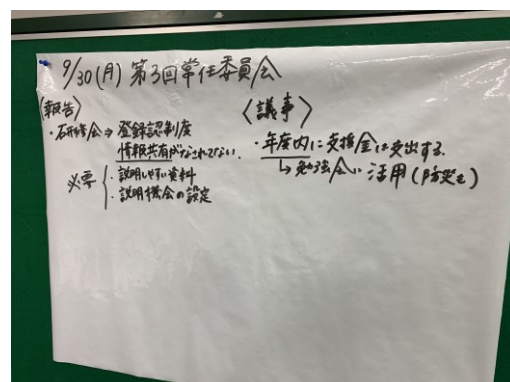 9/30(月) 第3回常任委員会
〈報告〉
・研修会⇒登録認制度
情報共有がなされてない.
必要
・説明しやすい資料
・説明機会の設定
〈議事〉
・年度内に支援金は支出する.
↳ 勉強会に活用(防災も)